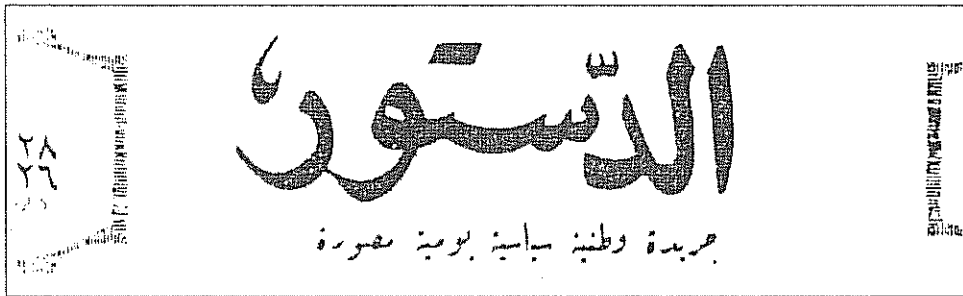 الدّستور
جريدة وطنية سياسية يومية مصورة
٢٨
٢٦